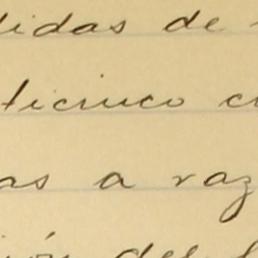 didas de
ticinco c
as a raz
ión del